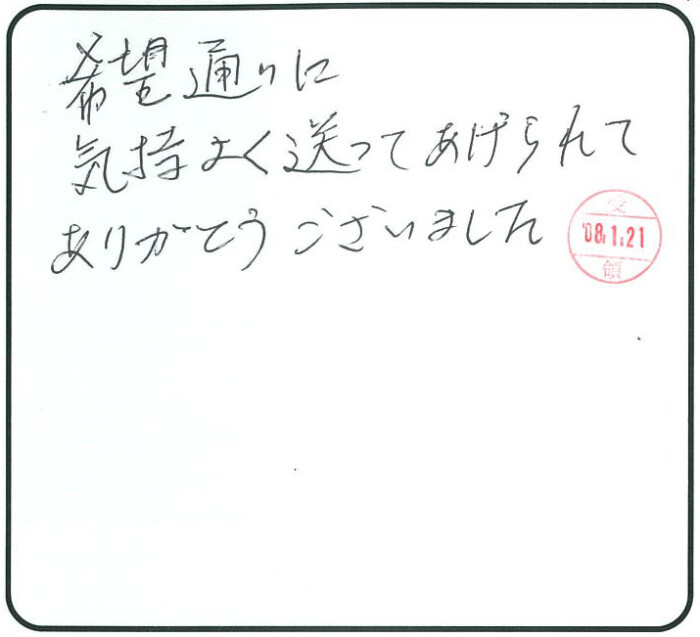 希望通りに
気持よく送ってあげられて
ありがとうございました
受
'08.1.21
領